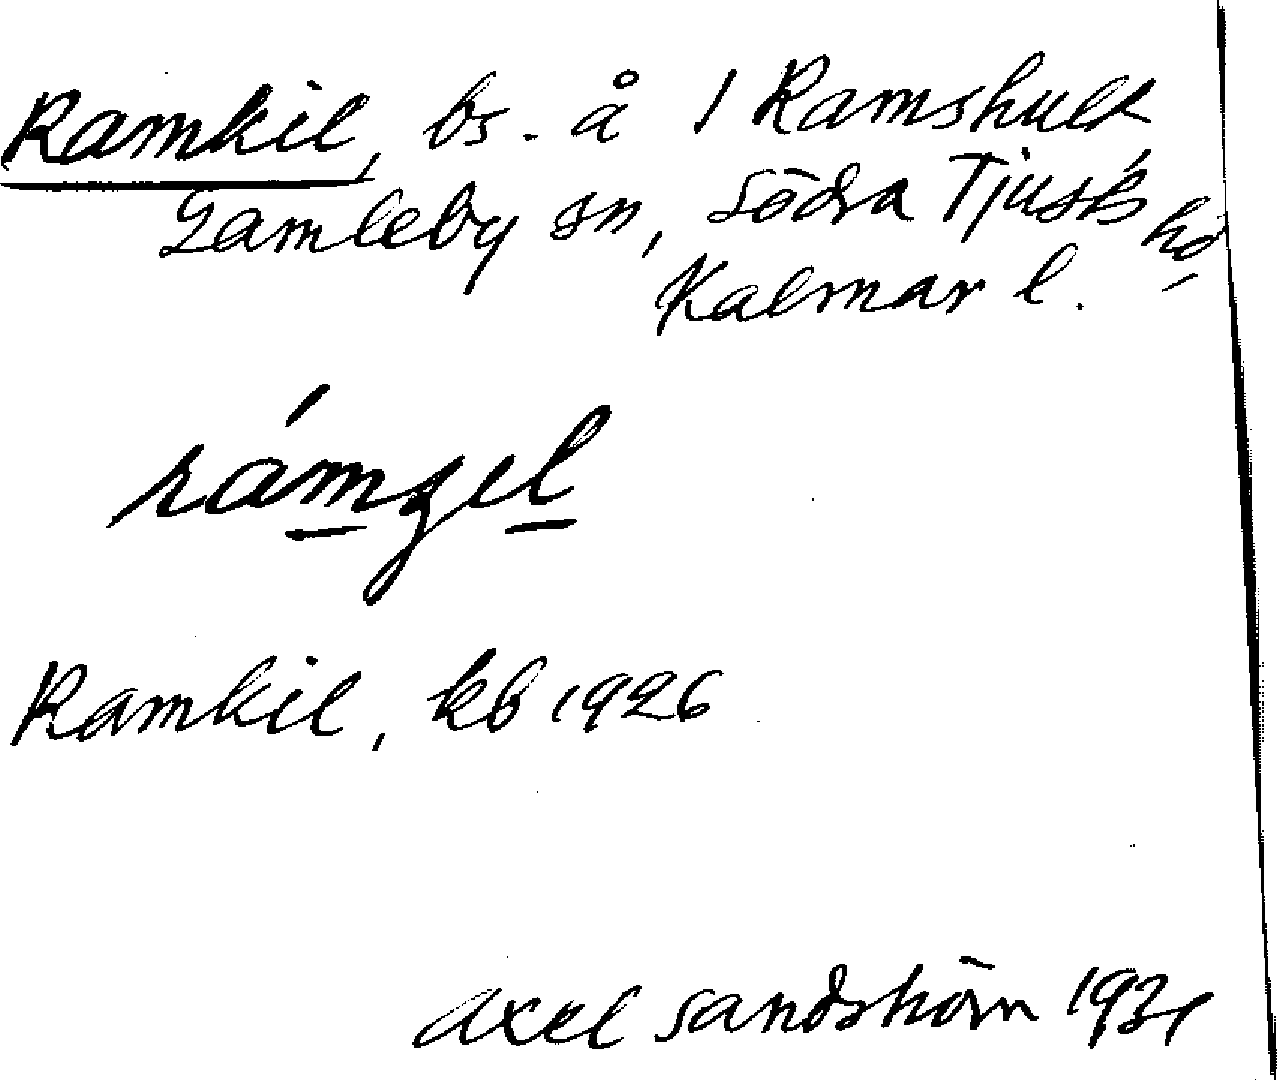 Ramkil, bs. å 1 Ramshult
Gamleby sn, Södra Tjusts hd
Kalmar l.
rámgel
Ramkil, kb 1926
Axel Sandström 1931